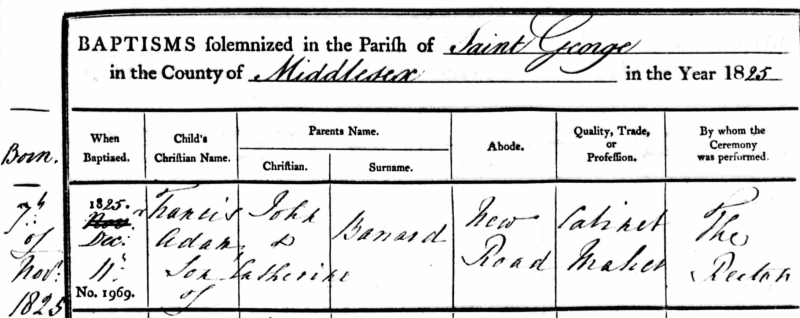 BAPTISMS solemnized in the Parish of Saint George
in the County of Middlesex in the Year 1825
Born.
When Baptized.
Child's Christian Name.
Parents Name.
Christian.
Surname.
Abode.
Quality, Trade, or Profession.
By whom the Ceremony was performed.
7th of Novr. 1825
1825. Novr. Decr. 11th
No. 1969.
Francis Adam, Son of
John & Catherine
Banard
New Road
Cabinet Maker
The Rector